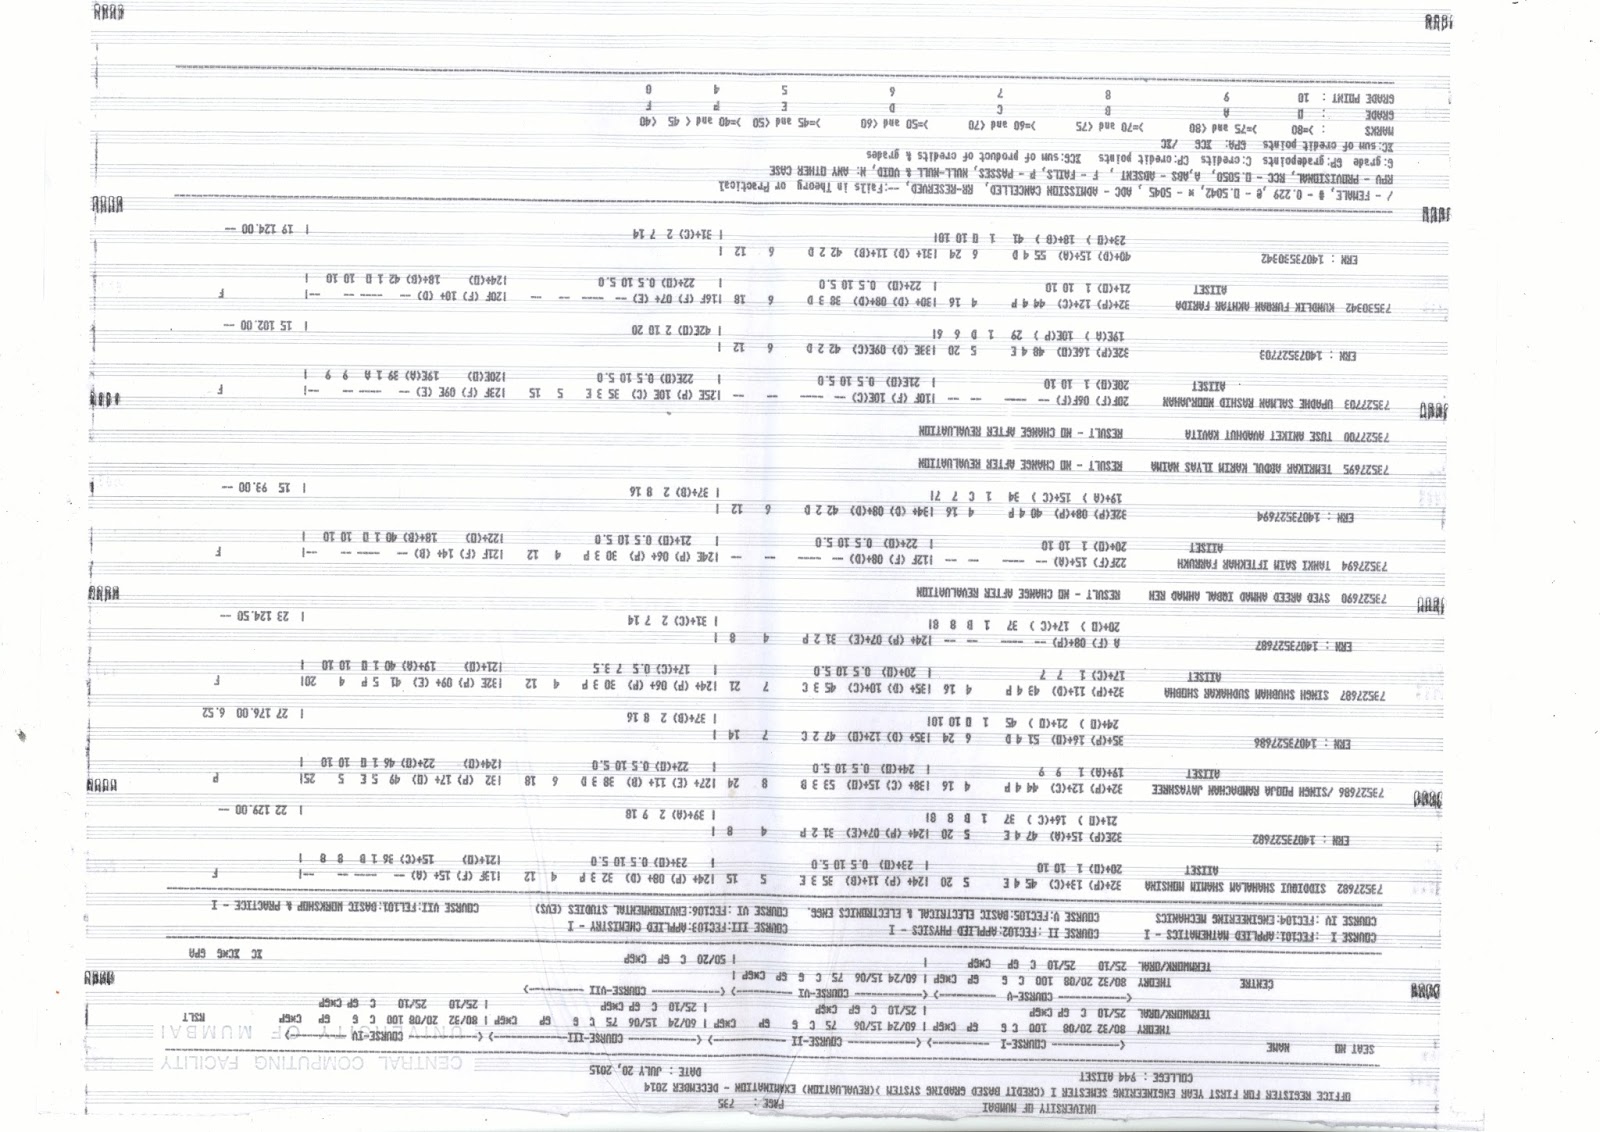 UNIVERSITY OF MUMBAI PAGE : 735
OFFICE REGISTER FOR FIRST YEAR ENGINEERING SEMESTER I (CREDIT BASED GRADING SYSTEM )(REVALUATION) EXAMINATION - DECEMBER 2014
COLLEGE : 944 AIISET DATE : JULY 20, 2015
CENTRAL COMPUTING FACILITY
UNIVERSITY OF MUMBAI
SEAT NO NAME <------------- COURSE-I ------------> <------------ COURSE-II ------------> <------------ COURSE-III------------> <------------COURSE-IV ------------>
THEORY 80/32 20/08 100 C G GP C*GP | 60/24 15/06 75 C G GP C*GP | 60/24 15/06 75 C G GP C*GP | 80/32 20/08 100 C G GP C*GP RSLT
TERMWORK/ORAL 25/10 C GP C*GP | 25/10 C GP C*GP | 25/10 C GP C*GP | 25/10 25/10 C GP C*GP
<------------- COURSE-V ------------> <------------ COURSE-VI ------------> <------------ COURSE-VII------------>
CENTRE THEORY 80/32 20/08 100 C G GP C*GP | 60/24 15/06 75 C G GP C*GP |
TERMWORK/ORAL 25/10 25/10 C GP C*GP | | 50/20 C GP C*GP
COURSE I :FEC101:APPLIED MATHEMATICS - I COURSE II :FEC102:APPLIED PHYSICS - I COURSE III:FEC103:APPLIED CHEMISTRY - I
COURSE IV :FEC104:ENGINEERING MECHANICS COURSE V:FEC105:BASIC ELECTRICAL & ELECTRONICS ENGG. COURSE VI :FEC106:ENVIRONMENTAL STUDIES (EVS) COURSE VII:FEL101:BASIC WORKSHOP & PRACTICE - I
73527682 SIDDIQUI SHAHALAM SHAMIM MOHSINA 32+(P) 13+(C) 45 4 E 5 20 |24+ (P) 11+(B) 35 3 E 5 15 |24+ (P) 08+ (D) 32 3 P 4 12 |13F (F) 15+ (A) -- ---- -- --| F
AIISET 20+(O) 1 10 10 | 23+(O) 0.5 10 5.0 | 23+(O) 0.5 10 5.0 |21+(O) 15+(C) 36 1 B 8 8 |
ERN : 14073527682 32E(P) 15+(A) 47 4 E 5 20 |24+ (P) 07+(E) 31 2 P 4 8 |
21+(O ) 16+(C ) 37 1 B 8 8| | 39+(A) 2 9 18 | 22 129.00 --
73527686 /SINGH POOJA RAMBACHAN JAYASHREE 32+(P) 12+(C) 44 4 P 4 16 |38+ (C) 15+(O) 53 3 B 8 24 |27+ (E) 11+ (B) 38 3 D 6 18 |32 (P) 17+ (O) 49 5 E 5 25| P
AIISET 19+(A) 1 9 9 | 24+(O) 0.5 10 5.0 | 22+(O) 0.5 10 5.0 |24+(O) 22+(O) 46 1 O 10 10 |
ERN : 14073527686 35+(P) 16+(O) 51 4 D 6 24 |35+ (O) 12+(O) 47 2 C 7 14 |
24+(O ) 21+(O ) 45 1 O 10 10| | 37+(B) 2 8 16 | 27 176.00 6.52
73527687 SINGH SHUBHAM SUDHAKAR SHOBHA 32+(P) 11+(D) 43 4 P 4 16 |35+ (D) 10+(C) 45 3 C 7 21 |24+ (P) 06+ (P) 30 3 P 4 12 |32E (P) 09+ (E) 41 5 P 4 20| F
AIISET 17+(C) 1 7 7 | 20+(O) 0.5 10 5.0 | 17+(C) 0.5 7 3.5 |21+(O) 19+(A) 40 1 O 10 10 |
ERN : 14073527687 A (F) 08+(P) -- ---- -- -- |24+ (P) 07+(E) 31 2 P 4 8 |
20+(O ) 17+(C ) 37 1 B 8 8| | 31+(C) 2 7 14 | 23 124.50 --
73527690 SYED AREEB AHMAD IQBAL AHMAD REH RESULT - NO CHANGE AFTER REVALUATION
73527694 TANKI SAIM IFTEKHAR FARRUKH 22F(F) 15+(A) -- ---- -- -- |12F (F) 08+(D) -- ---- -- -- |24E (P) 06+ (P) 30 3 P 4 12 |21F (F) 14+ (B) -- ---- -- --| F
AIISET 20+(O) 1 10 10 | 22+(O) 0.5 10 5.0 | 21+(O) 0.5 10 5.0 |22+(O) 18+(B) 40 1 O 10 10 |
ERN : 14073527694 32E(P) 08+(P) 40 4 P 4 16 |34+ (D) 08+(D) 42 2 D 6 12 |
19+(A ) 15+(C ) 34 1 C 7 7| | 37+(B) 2 8 16 | 15 93.00 --
73527695 TEMRIKAR ABDUL KARIM ILYAS NAIMA RESULT - NO CHANGE AFTER REVALUATION
73527700 TUSE ANIKET AVADHUT KAVITA RESULT - NO CHANGE AFTER REVALUATION
73527703 UPADHE SALMAN RASHID NOORJAHAN 20F(F) 06F(F) -- ---- -- -- |10F (F) 10E(C) -- ---- -- -- |25E (P) 10E (C) 35 3 E 5 15 |23F (F) 09E (E) -- ---- -- --| F
AIISET 20E(O) 1 10 10 | 21E(O) 0.5 10 5.0 | 22E(O) 0.5 10 5.0 |20E(O) 19E(A) 39 1 A 9 9 |
ERN : 14073527703 32E(P) 16E(O) 48 4 E 5 20 |33E (D) 09E(C) 42 2 D 6 12 |
19E(A ) 10E(P ) 29 1 D 6 6| | 42E(O) 2 10 20 | 15 102.00 --
73530342 KUNDLIK FURHAN AKHTAR FARIDA 32+(P) 12+(C) 44 4 P 4 16 |30+ (D) 08+(D) 38 3 D 6 18 |16F (F) 07+ (E) -- ---- -- -- |20F (F) 10+ (D) -- ---- -- --| F
AIISET 21+(O) 1 10 10 | 22+(O) 0.5 10 5.0 | 22+(O) 0.5 10 5.0 |24+(O) 18+(B) 42 1 O 10 10 |
ERN : 14073530342 40+(D) 15+(A) 55 4 D 6 24 |31+ (D) 11+(B) 42 2 D 6 12 |
23+(O ) 18+(B ) 41 1 O 10 10| | 31+(C) 2 7 14 | 19 124.00 --
/ - FEMALE, # - O.229 ,@ - O.5042, * - 5045 , ADC - ADMISSION CANCELLED, RR-RESERVED, --:Fails in Theory or Practical
RPV - PROVISIONAL, RCC - O.5050, A,ABS - ABSENT , F - FAILS, P - PASSES, NULL-NULL & VOID, N: ANY OTHER CASE
G:grade GP:gradepoints C:credits CP:credit points ΣCG:sum of product of credits & grades
ΣC:sum of credit points GPA: ΣCG /ΣC
MARKS : >=80 >=75 and <80 >=70 and <75 >=60 and <70 >=50 and <60 >=45 and <50 >=40 and < 45 <40
GRADE : O A B C D E P F
GRADE POINT : 10 9 8 7 6 5 4 0